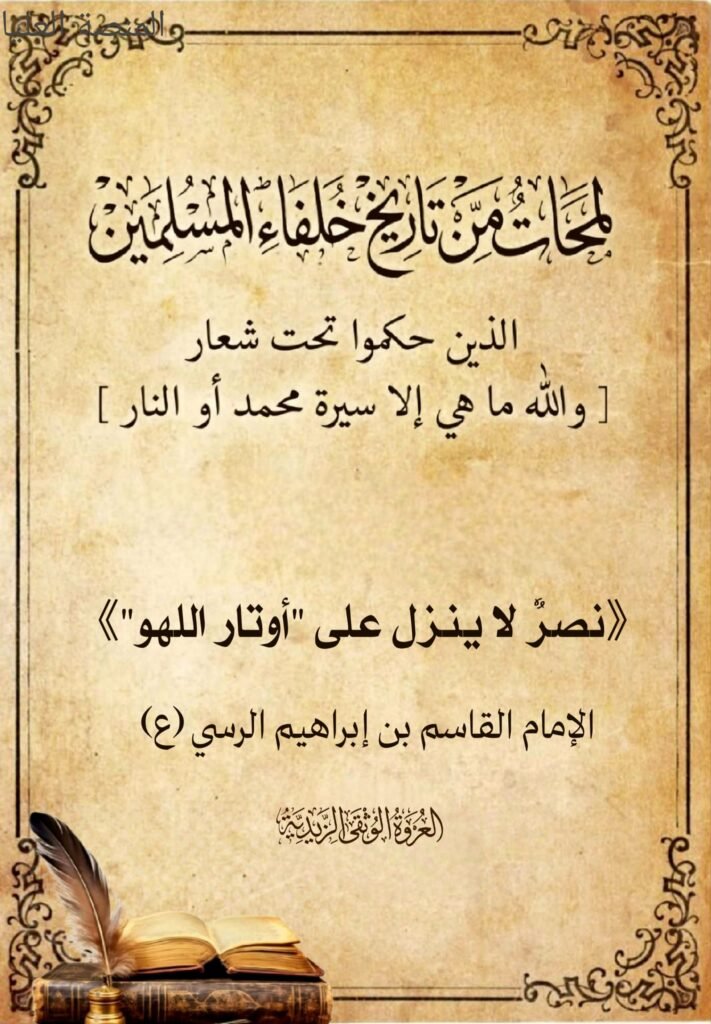 المنصة العليا
لمحات من تاريخ خلفاء المسلمين
الذين حكموا تحت شعار
[ والله ما هي إلا سيرة محمد أو النار ]
《نصرٌ لا ينزل على "أوتار اللهو"》
الإمام القاسم بن إبراهيم الرسي (ع)
العروة الوثقى الزيدية